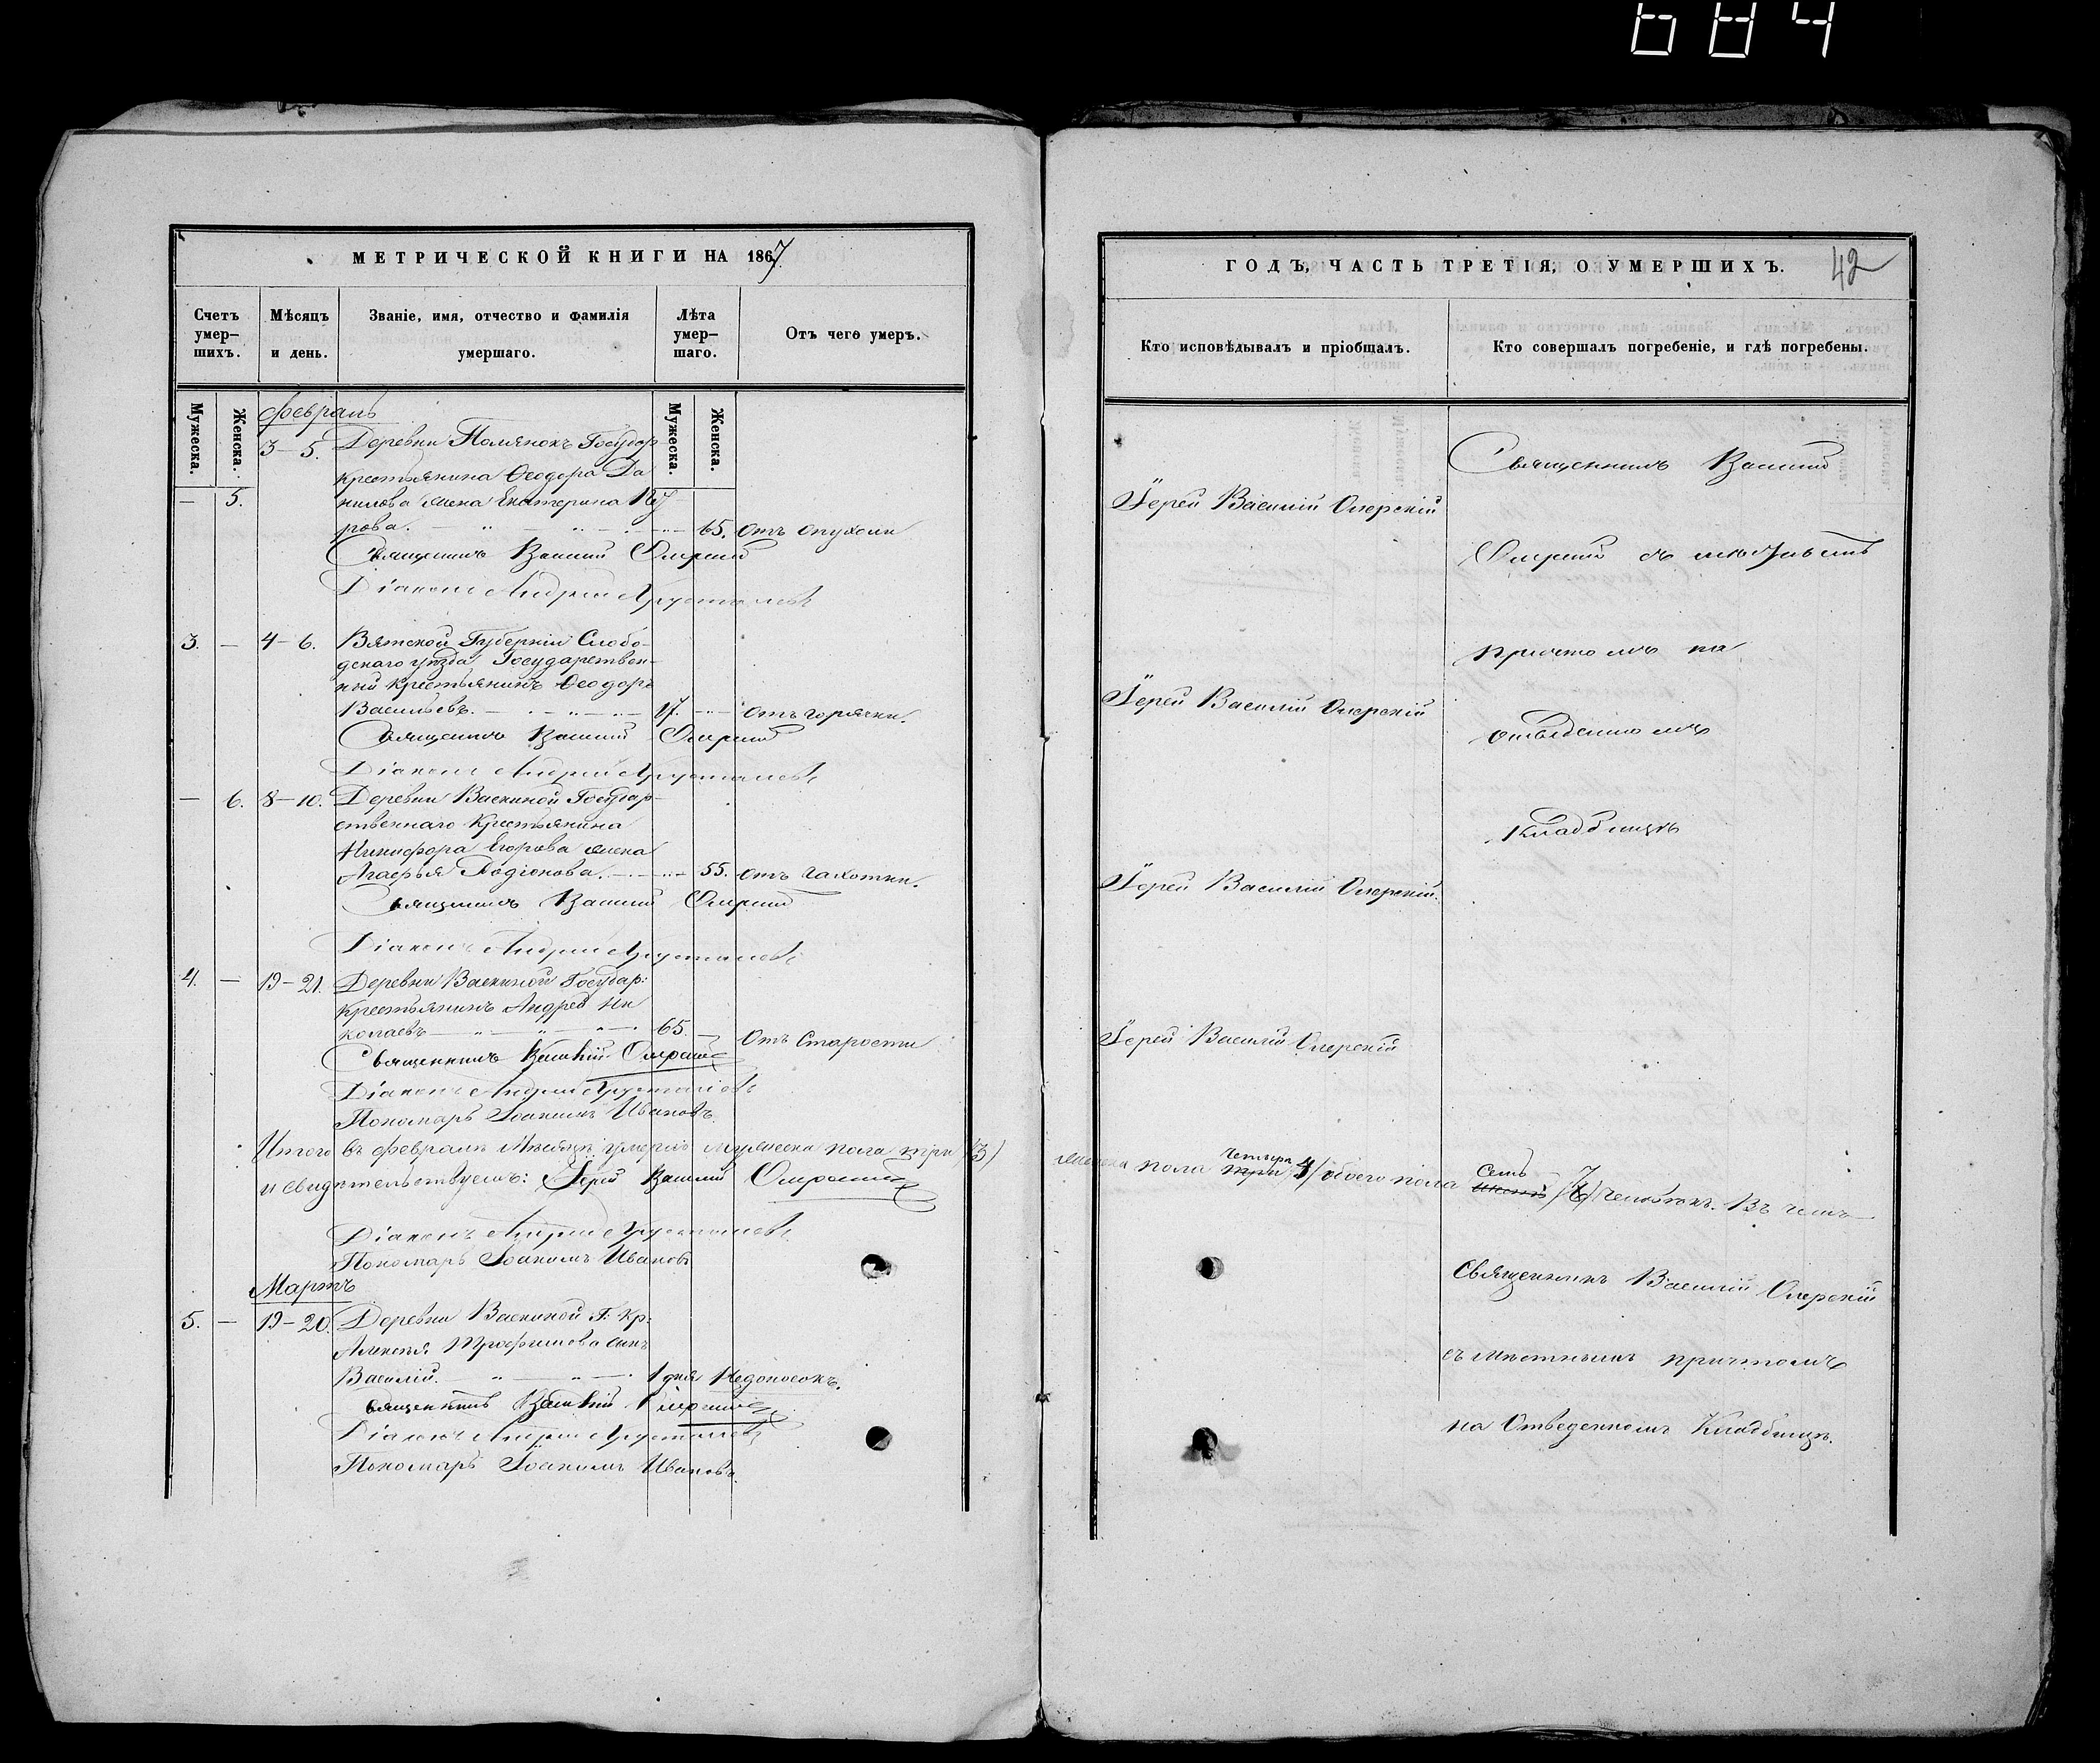 684
МЕТРИЧЕСКОЙ КНИГИ НА 1867
Счетъ умер-шихъ.
Мѣсяцъ и день.
Званіе, имя, отчество и фамилія умершаго.
Лѣта умер-шаго.
Отъ чего умеръ.
Мужеска.
Женска.
Мужеска.
Женска.
Февраль
3–5. Деревни Полянокъ Государ
крестьянина Ѳеодора Да
— 5. нилова жена Екатерина
рова. 65. отъ опухоли
Священникъ Василій Озерскій
Діаконъ Андрей Хрусталевъ
3. — 4–6. Вятской Губерніи Слобо-
дскаго уѣзда Государствен-
ный крестьянинъ Ѳеодоръ
Васильевъ. 17. отъ горячки.
Священникъ Василій Озерскій
Діаконъ Андрей Хрусталевъ
— 6. 8–10. Деревни Васкиной Государ-
ственнаго Крестьянина
Никифора Егорова жена
Агафья Родіонова. 55. отъ чахотки.
Священникъ Василій Озерскій
Діаконъ Андрей Хрусталевъ
4. — 19–21. Деревни Васкиной Государ:
крестьянинъ Андрей Ни
колаевъ 65. отъ Старости
Священникъ Василій Озерскій
Діаконъ Андрей Хрусталевъ
Пономарь Іоакимъ Ивановъ
Итого въ февралѣ Мѣсяцѣ умерло мужеска пола три (3)
и свидѣтельствуемъ: Іерей Василий Озерскій
Діаконъ Андрей Хрусталевъ
Пономарь Іоакимъ Ивановъ
Мартъ
5. — 19–20. Деревни Васкиной Г: Кр:
Алексѣя Трофимова сынъ
Василій. 1 дня Недоносокъ.
Священникъ Василій Озерскій
Діаконъ Андрей Хрусталевъ
Пономарь Іоакимъ Ивановъ.
ГОДЪ, ЧАСТЬ ТРЕТІЯ, О УМЕРШИХЪ. 42
Кто исповѣдывалъ и пріобщалъ.
Кто совершалъ погребеніе, и гдѣ погребены.
Священникъ Василий
Іерей Василій Озерскій
Озерскій съ мѣстнымъ
причтомъ на
Іерей Василій Озерскій
отведенномъ
кладбищѣ
Іерей Василій Озерскій.
Іерей Василій Озерскій
четыре Семь
женска пола три 4/ обоего пола шесть /7/ человѣкъ. Въ чемъ
Священникъ Василій Озерскій
съ мѣстнымъ причтомъ
на Отведенномъ Кладбищѣ.